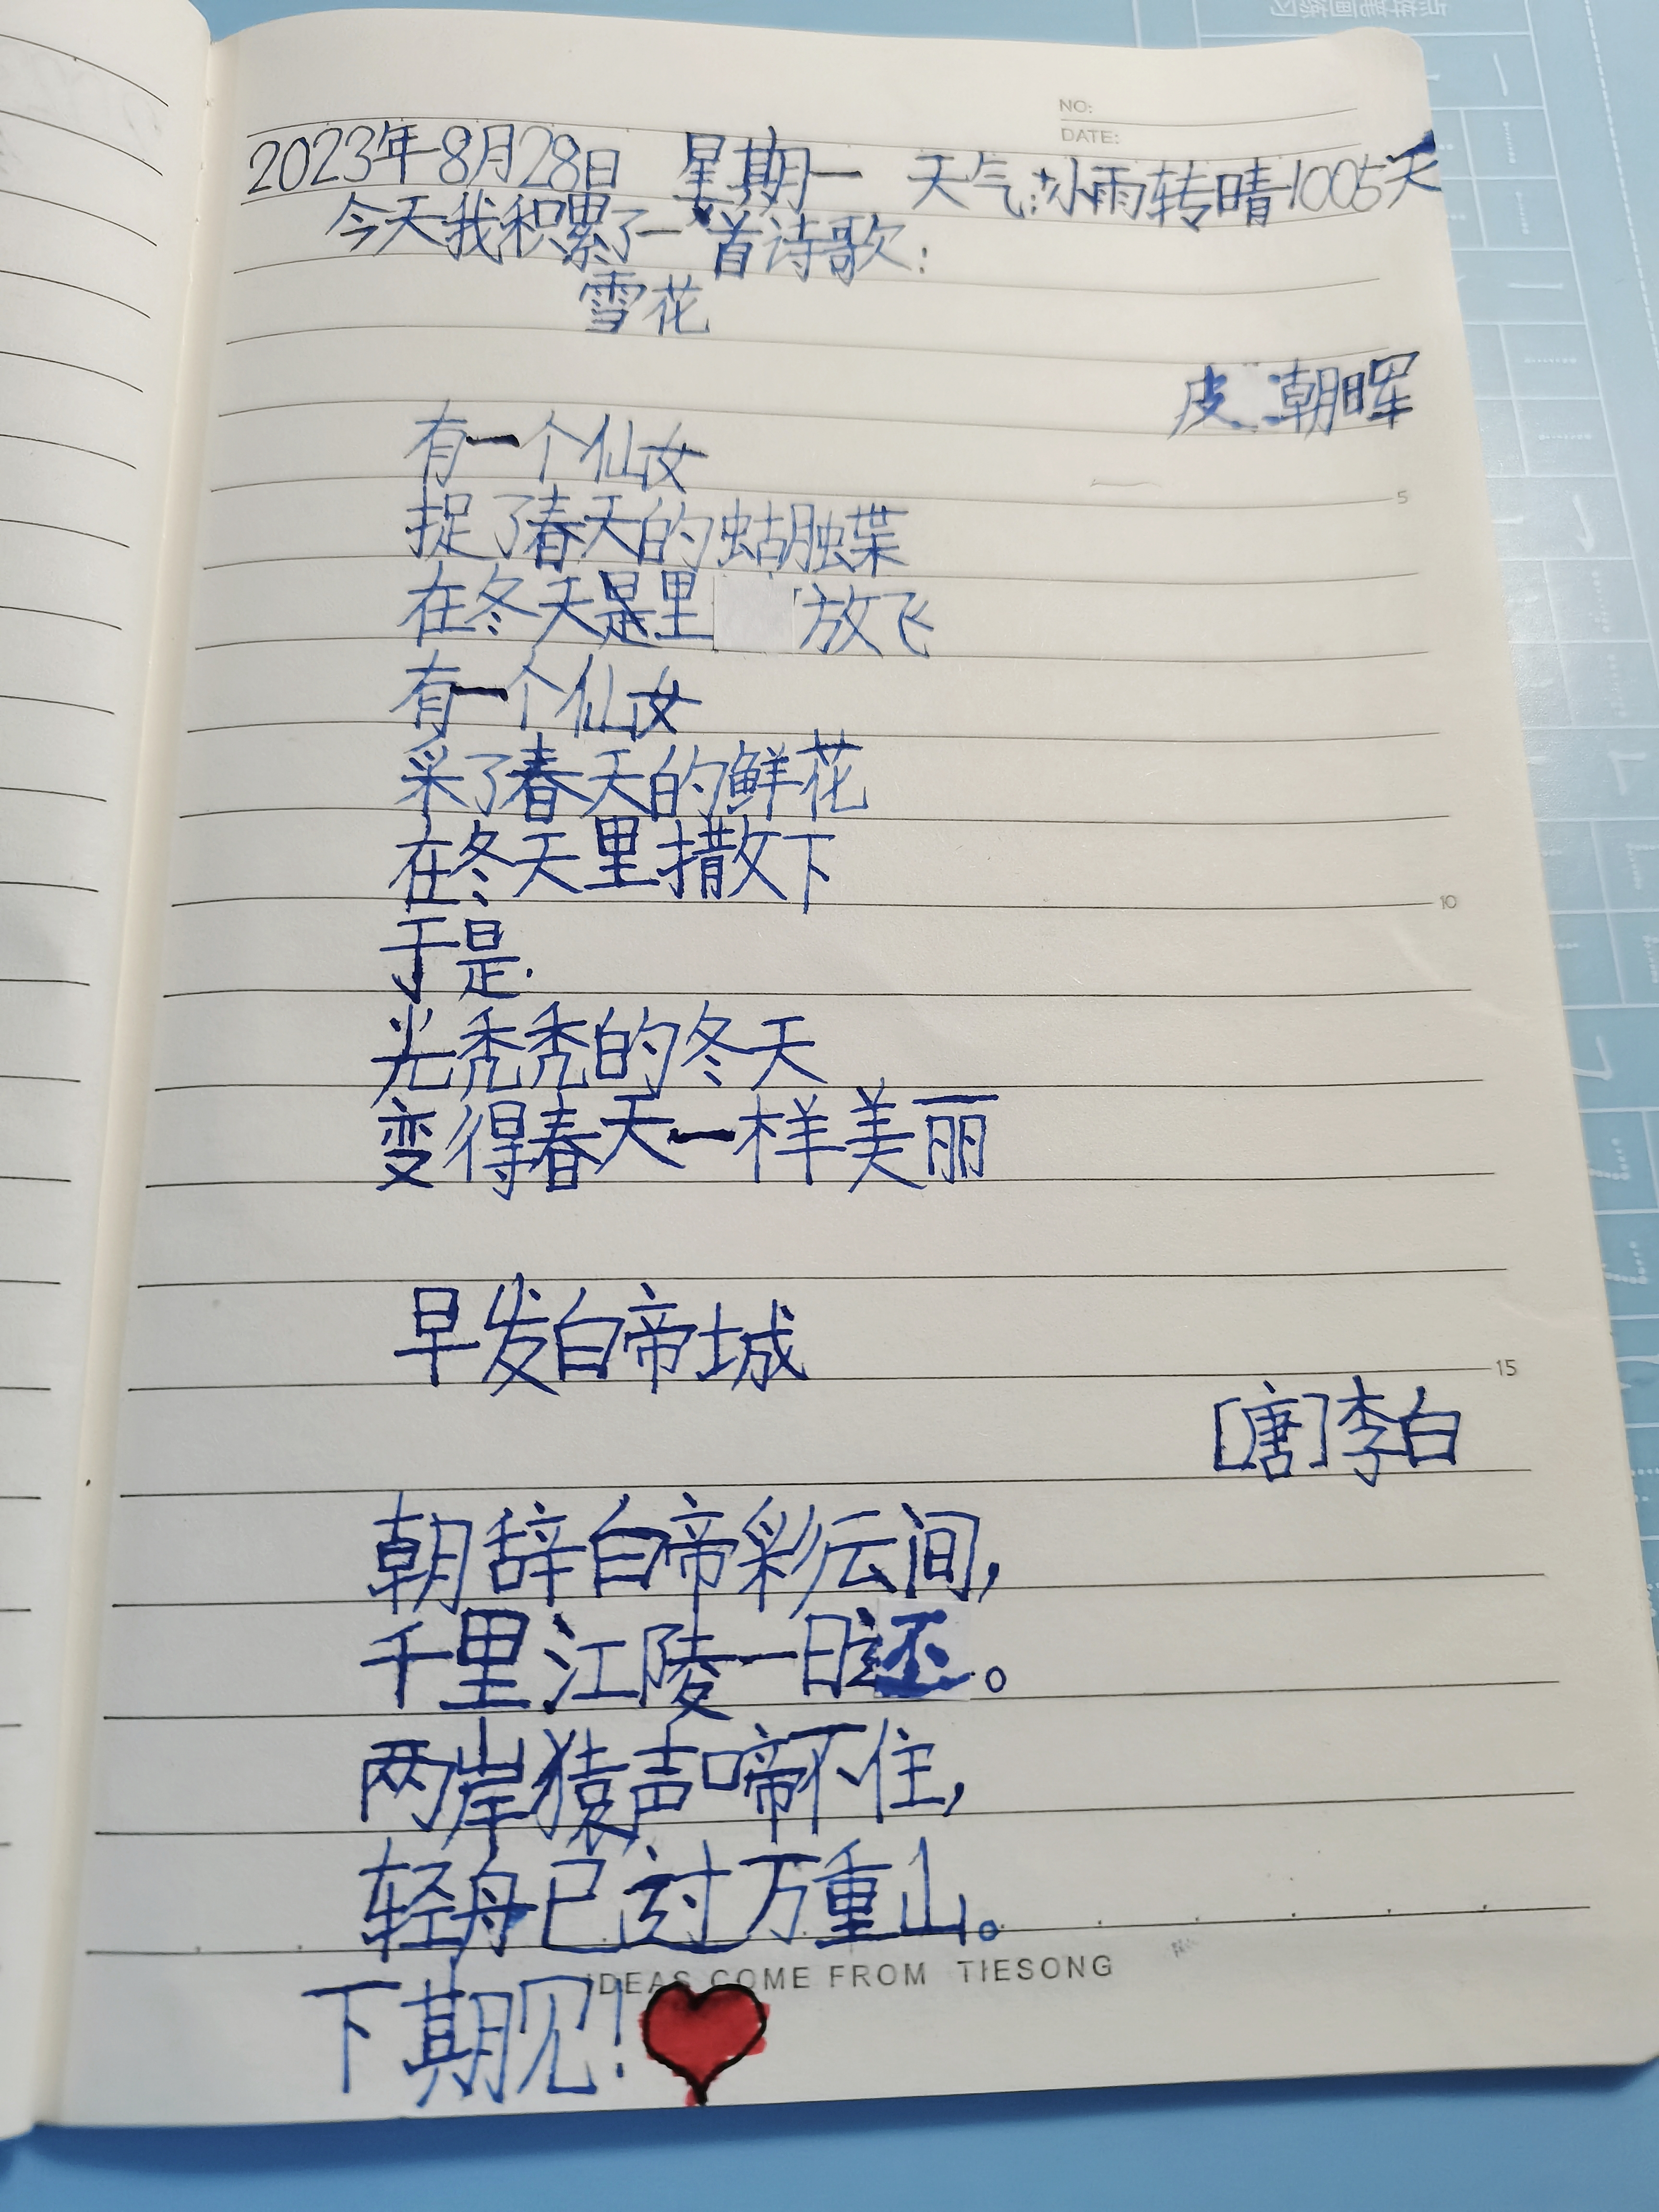 NO:
DATE:
2023年8月28日 星期一 天气:小雨转晴1005天
今天我积累了一首诗歌:
雪花
皮朝晖
有一个仙女
捉了春天的蝴蝶
在冬天是里放飞
有一个仙女
采了春天的鲜花
在冬天里撒下
于是.
光秃秃的冬天
变得春天一样美丽
早发白帝城
[唐]李白
朝辞白帝彩云间,
千里江陵一日还。
两岸猿声啼不住,
轻舟已过万重山。
IDEAS COME FROM TIESONG
下期见!
5
10
15